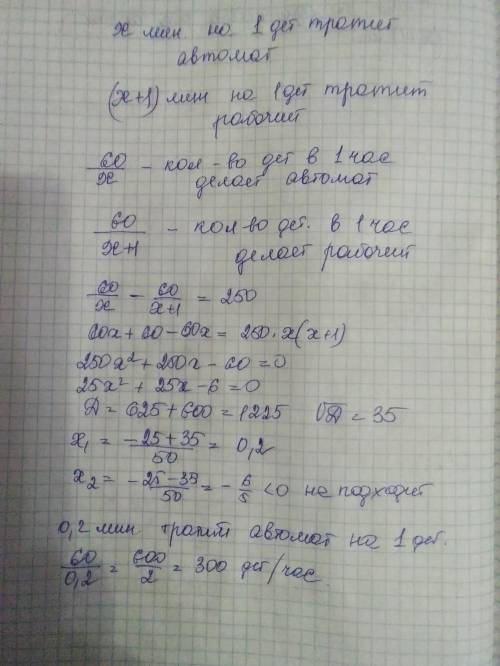 x мин на 1 дет тратит
автомат
(x+1) мин на 1 дет тратит
рабочий
60/x - кол-во дет в 1 час
делает автомат
60/x+1 - кол во дет. в 1 час
делает рабочий
60/x - 60/x+1 = 250
60x + 60 - 60x = 250·x(x+1)
250x² + 250x - 60 = 0
25x² + 25x - 6 = 0
D = 625 + 600 = 1225 √D = 35
x₁ = -25+35/50 = 0,2
x₂ = -25-35/50 = -6/5 <0 не подходит
0,2 мин тратит автомат на 1 дет.
60/0,2 = 600/2 = 300 дет/час.